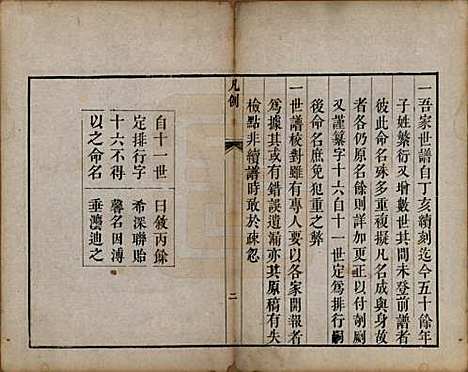 一吾家世譜自丁亥續刻迄今五十餘年
子姓繁衍又增數世其間未登前譜者
彼此命名殊多重複擬凡名成與身故
者各仍原名餘則詳加更正以付剞劂
又謹纂字十六自十一世定為排行嗣
後命名庶免犯重之弊
一世譜校對雖有專人要以各家開報者
為據其或有錯誤遺漏亦其原稿有失
檢點非續譜時敢於疎忽
凡例
二
自十一世
定排行字
十六不得
以之命名
曰敘丙餘
希深聯貽
馨名因溥
垂灃迪之